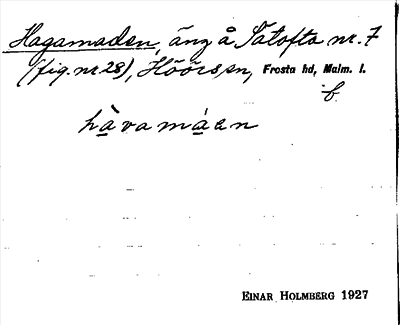 Hagamaden, äng å Tåtofta nr. 7
(fig. nr. 28), Höörs sn, Frosta hd, Malm. l.
f.
hàvamáen
EINAR HOLMBERG 1927